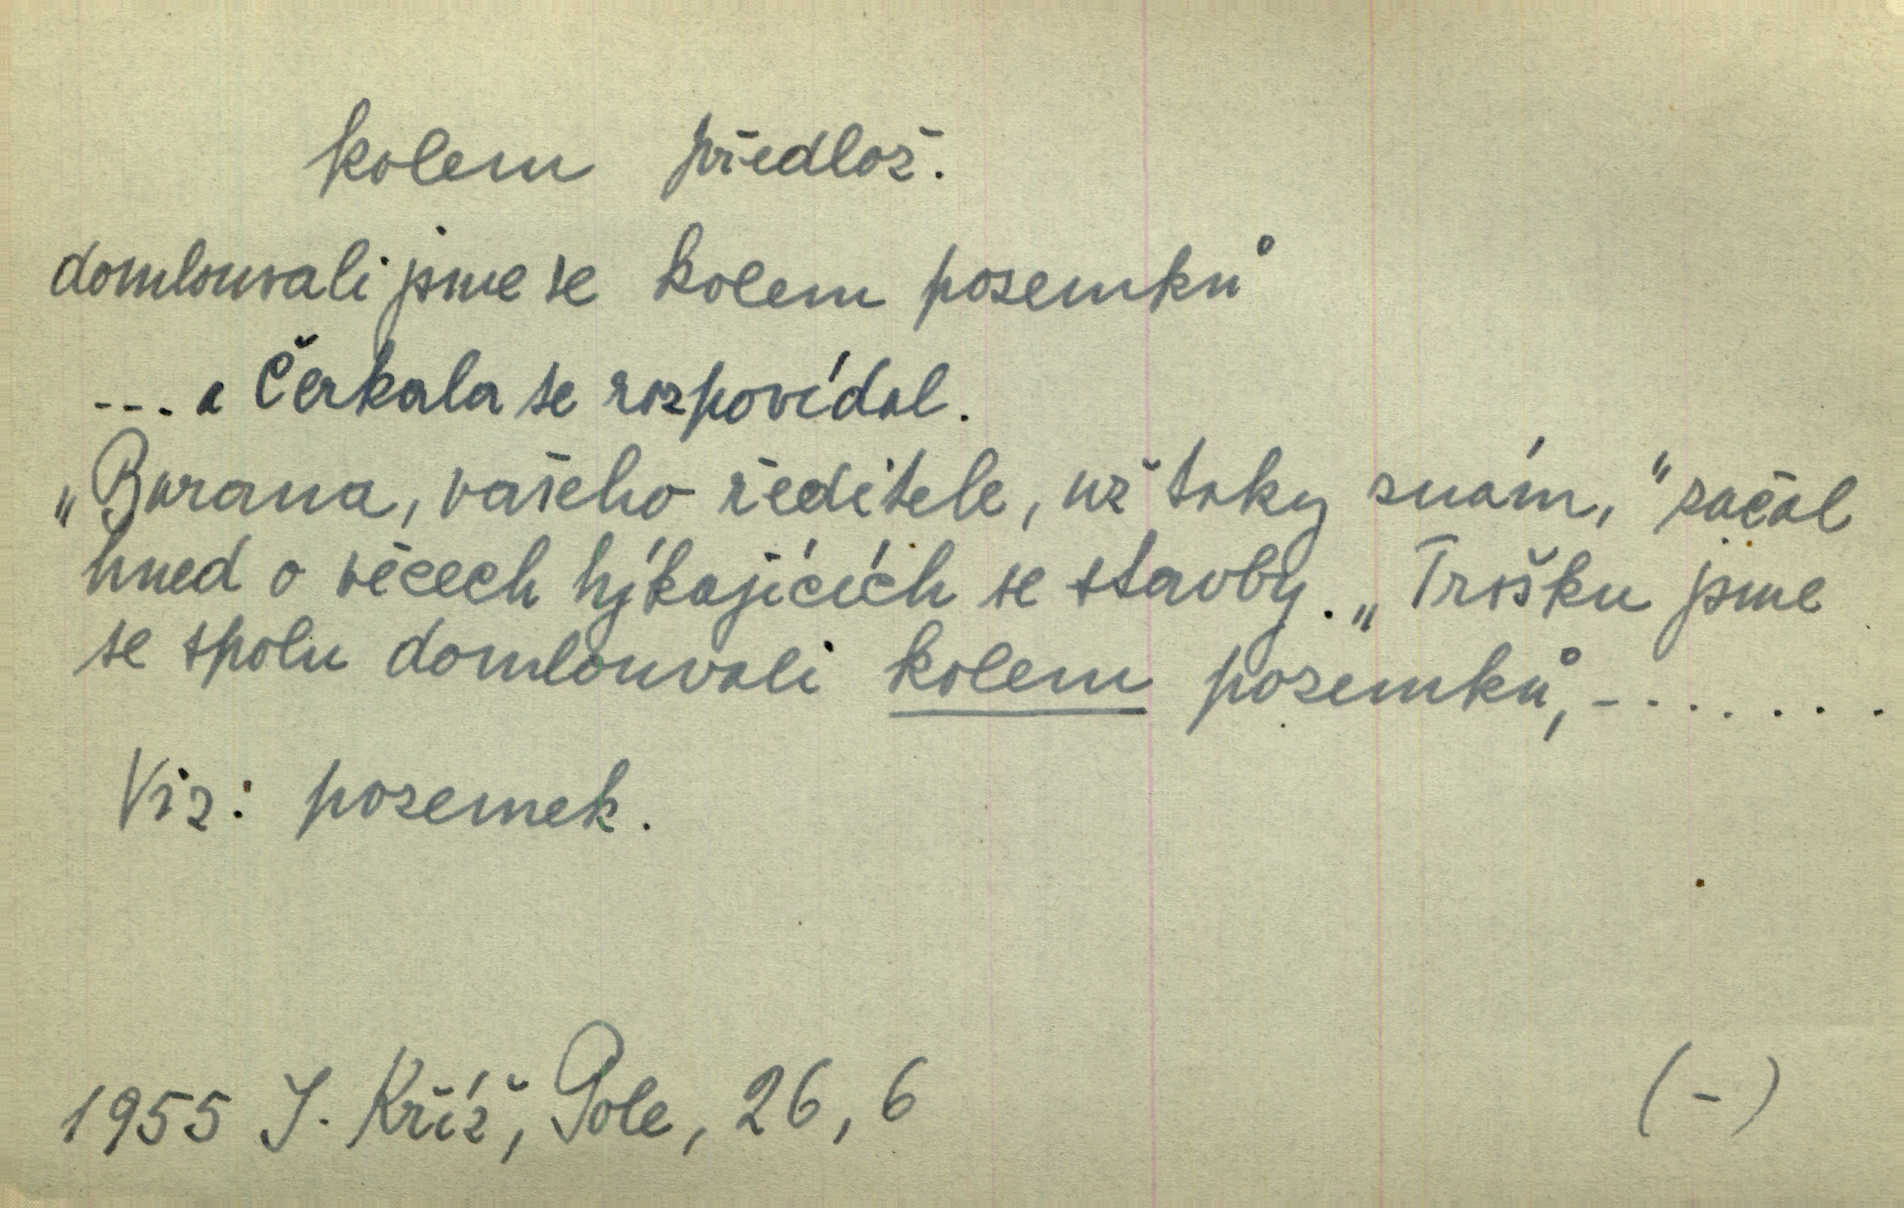 kolem předlož.
domlouvali jsme se kolem pozemků
---. a Čerkala se rozpovídal.
„Burana, vašeho ředitele, už taky znám," začal
hned o věcech týkajících se stavby. „Trošku jsme
se spolu domlouvali kolem pozemků, -.......
Viz: pozemek.
1955 J. Kříž, Pole, 26, 6
(-)